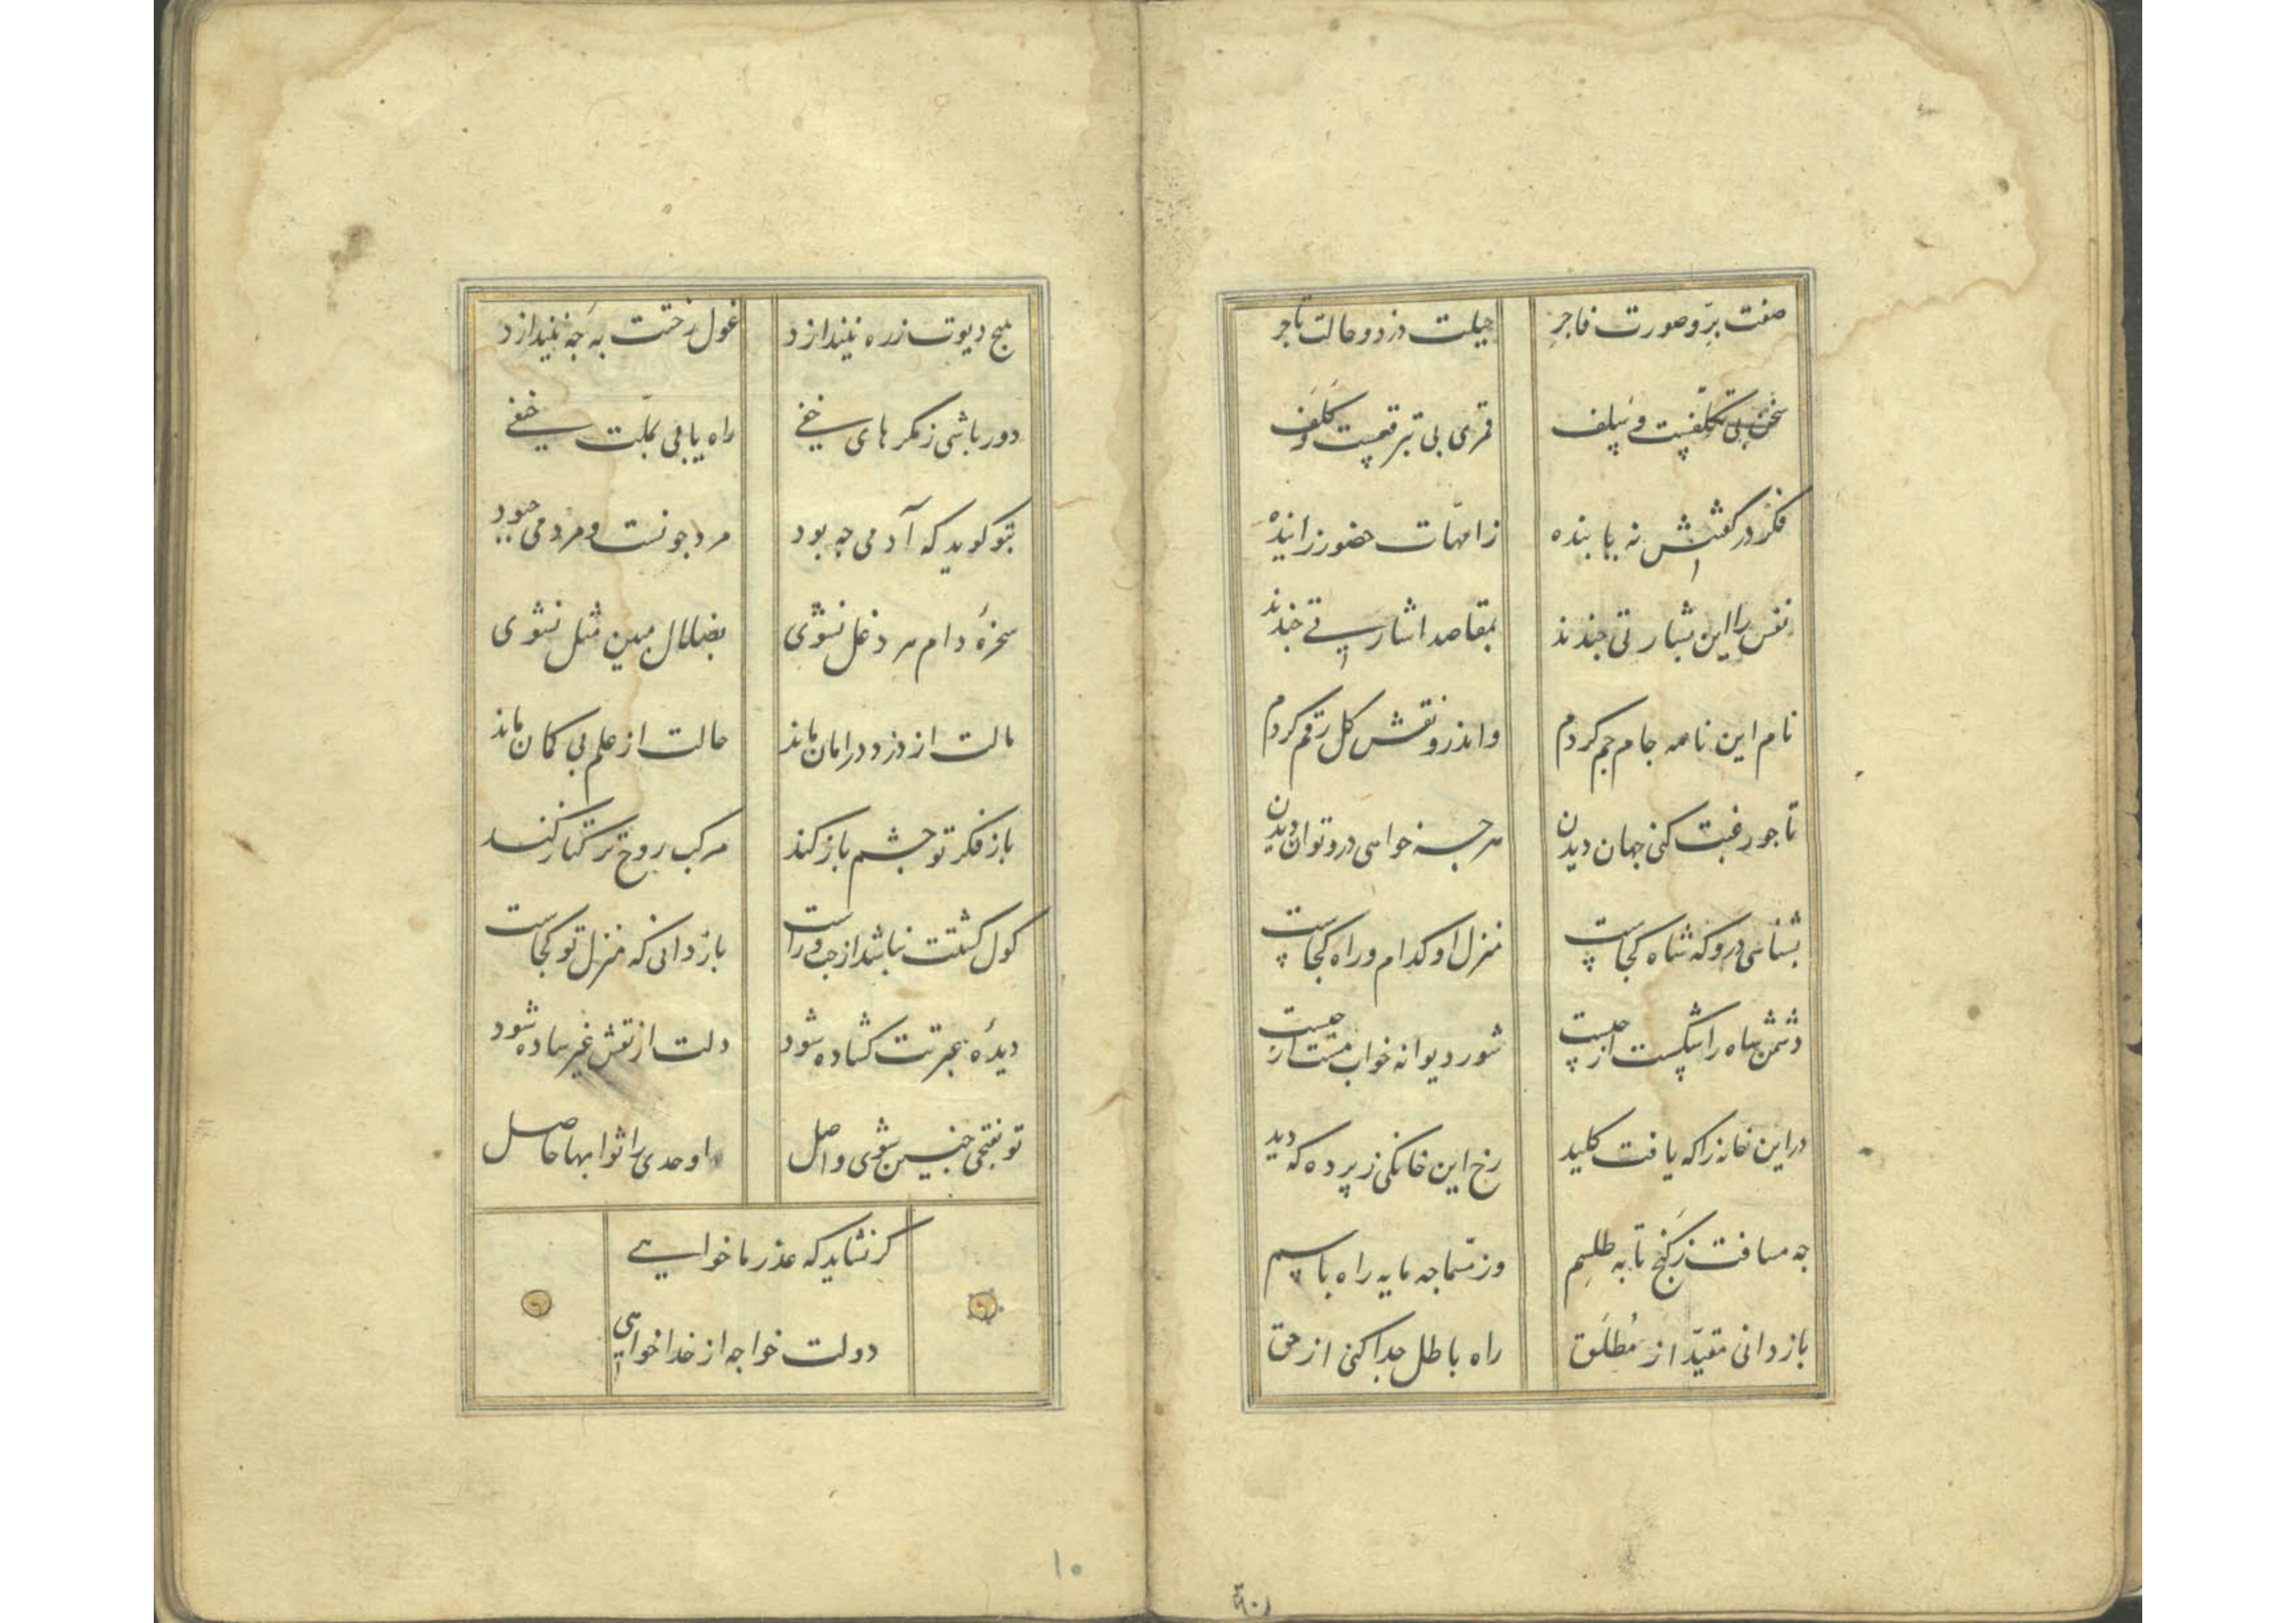 صفت برّ و صورت فاجر
حیلت دزد و حالت تاجر
سخنی بی تکلفیست و پلف
قمری بی تبرقعیست و کلف
فکر در کفتنش نه یابنده
زامهات حضور زاینده
نفس را این بشارتی چندند
بمقاصد اشارتی چندند
نام این نامه جام جم کردم
واندرو نقش کل رقم کردم
تا جو رغبت کنی جهان دیدن
هرجه خواهی درو توان دیدن
بشناسی درو که شاه کجاست
منزل او کدام و راه کجاست
دشمن شاه را شکست از چیست
شور دیوانه خواب مست از چیست
در این خانه را که یافت کلید
رخ این خانکی ز پرده که دید
جه مسافت ز کنج تا به طلسم
وز مسما جه مایه راه باسم
باز دانی مقیّد از مُطلَق
راه باطل جدا کنی از حق
هیچ دیوت ز ره نیندازد
غول رختت به جه نیندازد
دور باشی ز مکرهای خفی
راه یابی بملّت حنفی
بتو کوید که آدمی چه بود
مرد جونست و مردمی چه بود
سخرهٔ دام هر دغل نشوی
بضلال مبین مثل نشوی
مالت از دزد در امان ماند
حالت از علم بی کمان ماند
باز فکر تو جشم باز کند
مرکب روح ترکتاز کند
کول کشتت نباشد از چپ و راست
باز دانی که منزل تو کجاست
دیدهٔ عبرتت کشاده شود
دلت از نقش غیر ساده شود
تو بفتحی جنین شوی واصل
اوحدی را ثوابها حاصل
کر نشاید که عذر ما خواهی
دولت خواجه از خدا خواهی
۱۰